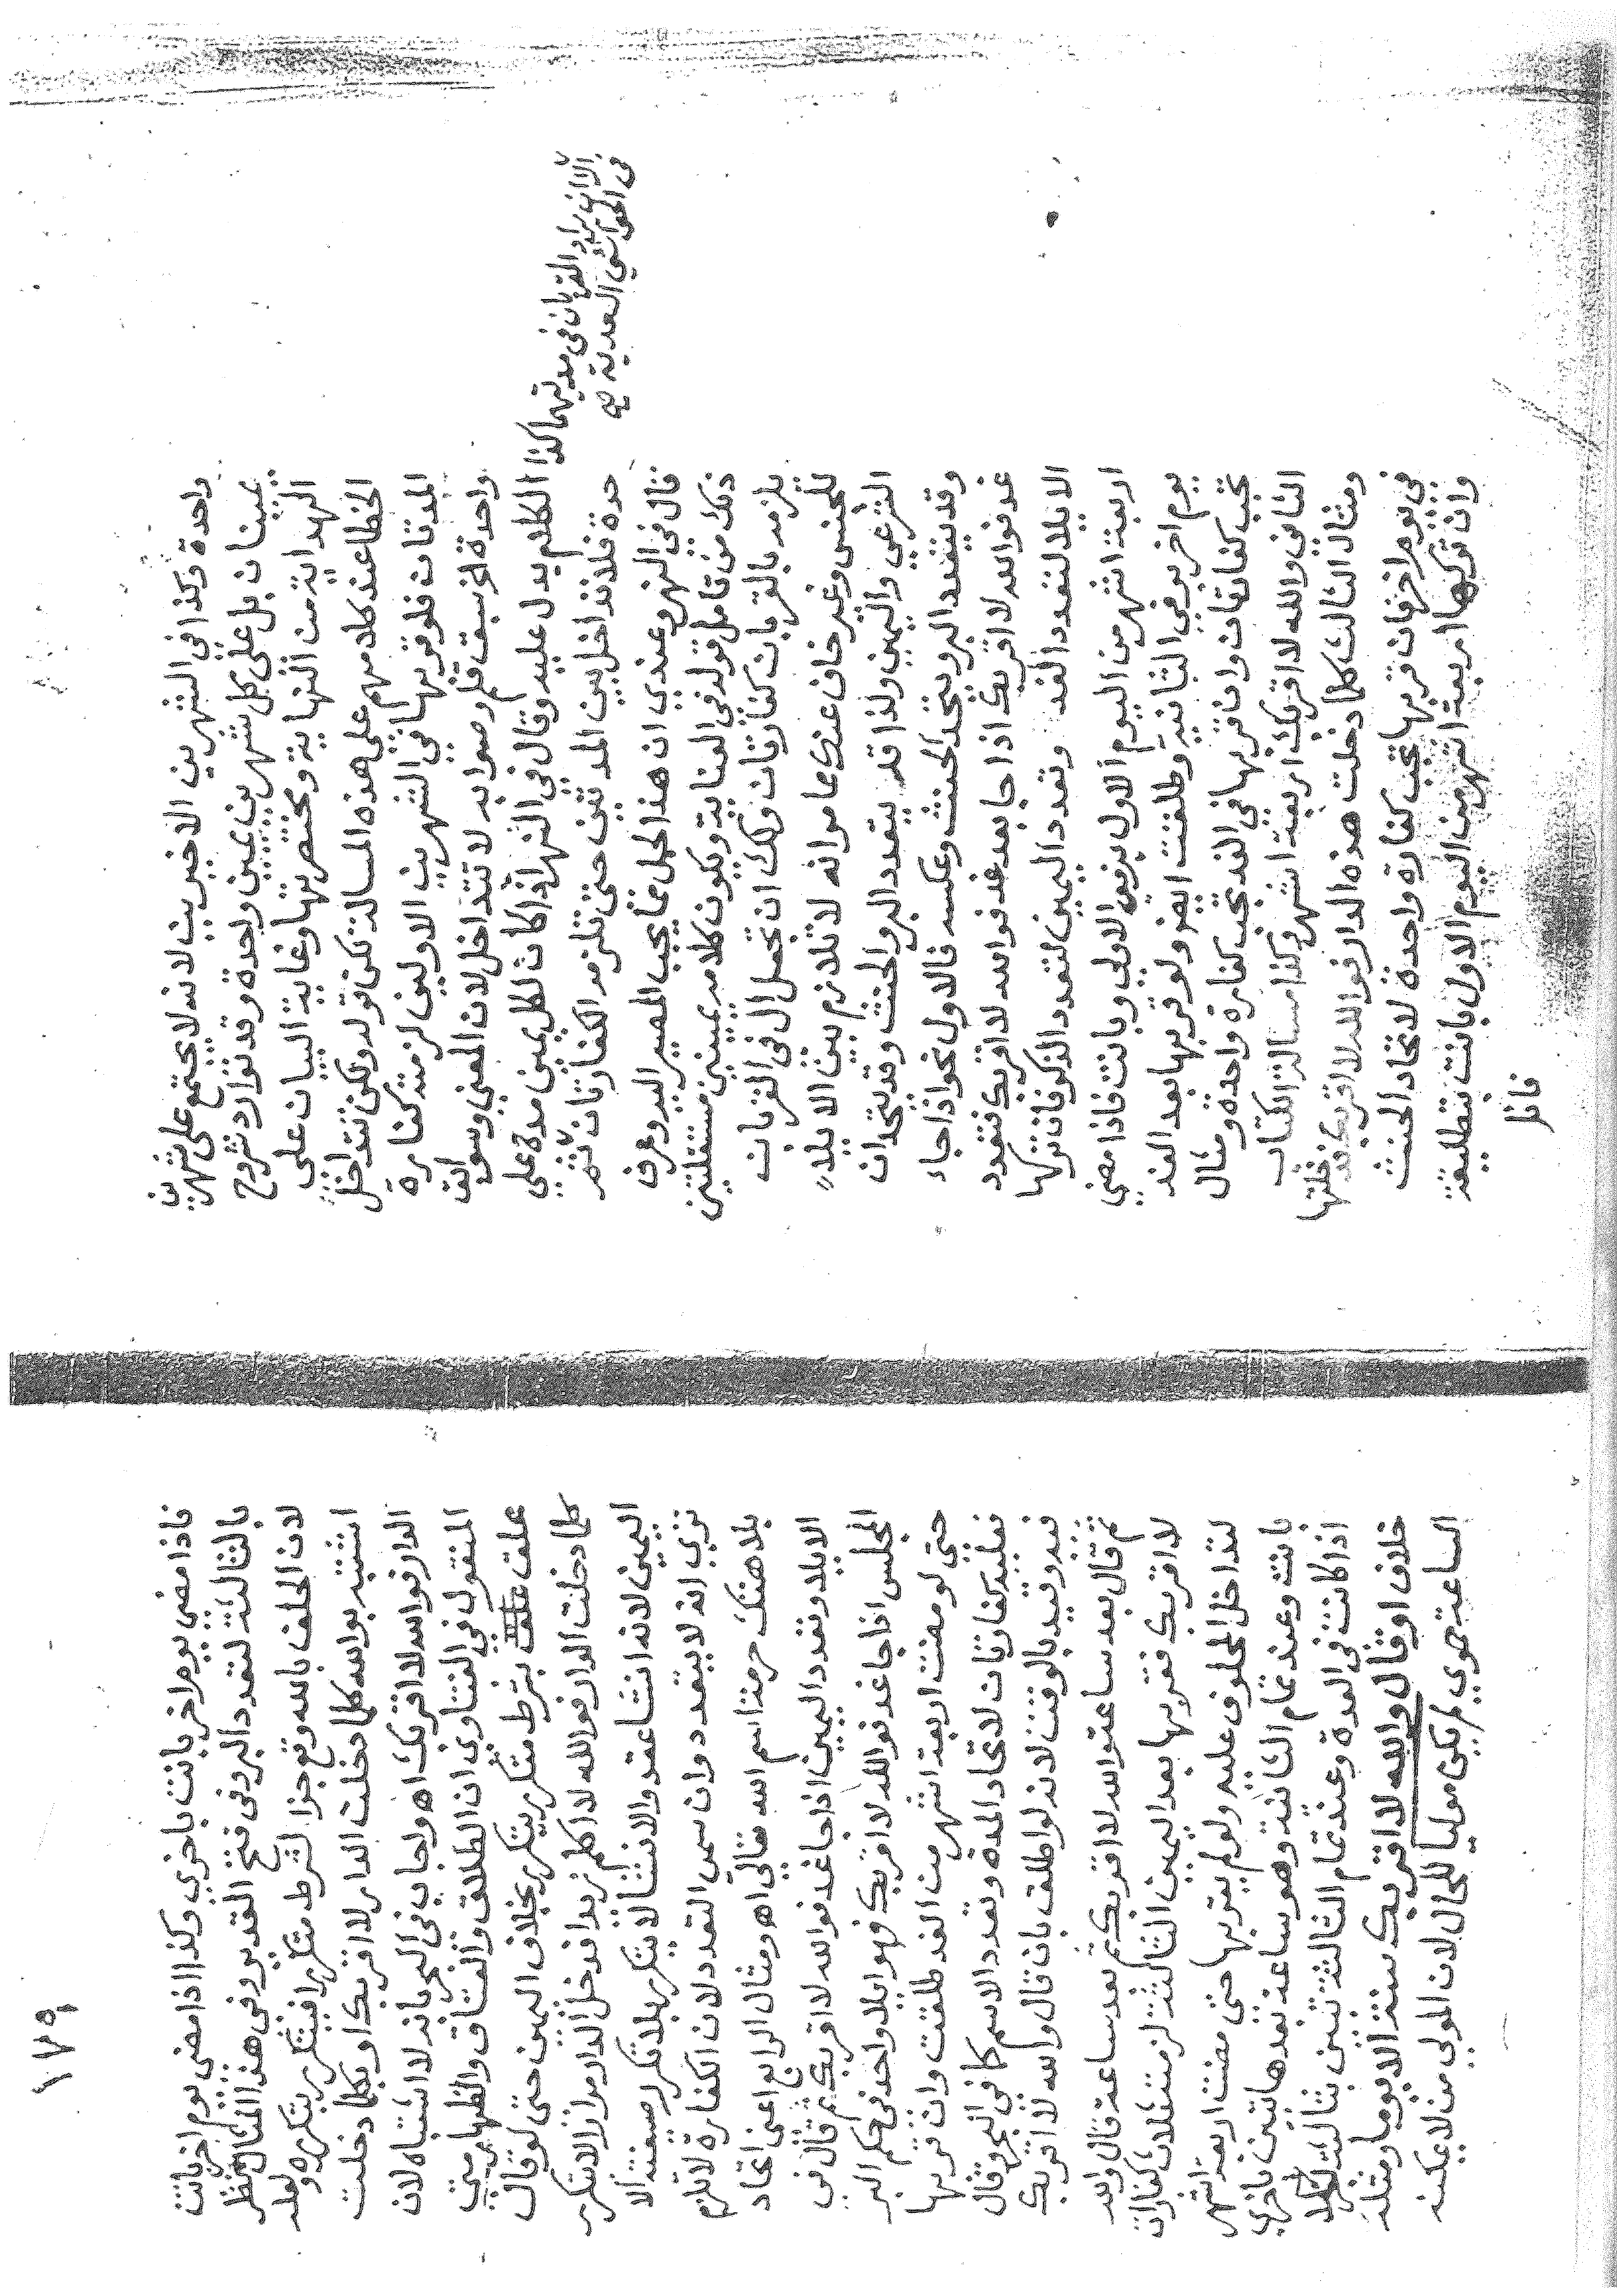 واحدة وكذا في الشهرين الاخيرين لانه لا يجتمع على شهرين
يمينان بل على كل شهرين يمين واحدة وقد توارد شروح
الهداية من النهاية ومختصريها وغاية البيان على
الخطا عند كلامهم على هذه المسالة لكن قوله ولكن تتداخل
المدتان فلو قربها في الشهرين الاولين لزمته كفارة
واحدة اخ سبق قلم وصوابه لا تتداخل لان المعنى وسوق
الكلام يدل عليه وقال في النهر اذا كان لكل يمين مدة على
حدة فلا تداخل بين المدتين حتى تلزمه الكفارتان ثم
الا ان يراد القربان في مدتهما كذا
في الحواشي السعدية صح
قال في النهر وعندي ان هذا الحمل مما يجب المصير اليه وعرف
ذلك من تامل قوله في العناية ويكون كلامه يمينين مستقلتين
يلزمه بالقربان كفارتان ولك ان تحمل ال في القربان
للجنس وغير خاف عنك ما مر انه لا تلازم بين الايلاء
الشرعي واليمين ولذا قد يتعدد البر والحنث وقد يتحدان
وقد يتعدد البر ويتحد الحنث وعكسه فالاول نحو اذا جاء
غد فوالله لا اقربك اذا جا بعد غد فوالله لا اقربك فتعدد
الايلا لتعدد المدد وتعدد اليمين لتعدد الذكر فان تركها
اربعة اشهر من اليوم الاول يزيمن الاولى وبانت فاذا مضى
يوم اخر يوفي الثانية وطلقت ايضا ولو قربها بعد الغد
تجب كفارتان وان قربها في الغد تجب كفارة واحدة ومثال
الثاني والله لا اقربك اربعة اشهر وكذا مسالة الكتاب
ومثال الثالث كلما دخلت هذه الدار فوالله لا اقربك فدخلتها
في يوم اخر فان قربها تجب كفارة واحدة لاتحاد الحنث
وان تركها اربعة اشهر من اليوم الاول بانت بتطليقة
فاذا
١٧٩
فاذا مضى يوم اخر بانت باخرى وكذا اذا مضى يوم اخر بانت
بالثالثة لتعدد البر وفي فتح القدير وفي هذا المثال نظر
لان الحلف بالله وقع جزا لشرط متكرر فيتكرر بتكرره ولعله
اشتبه بوالله كلما دخلت الدار لا اقربك او بكلما دخلت
الدار فوالله لا اقربك اه واجاب في البحر بانه لا اشتباه لان
المنقول في الفتاوى ان الطلاق والعتاق والظهار متى
علق بشرط متكرر يتكرر بخلاف اليمين حتى لو قال
كلما دخلت الدار فوالله لا اكلم زيدا فدخل الدار مرارا لا تتكرر
اليمين لانه انشا عقد والانشا لا يتكرر بلا تكرر صيغته الا
ترى انه لا يتعدد وان سمى التعدد لان الكفارة لا تلزم
بلا هتك حرمة اسم الله تعالى اه ومثال الرابع اعني اتحاد
الايلا وتعدد اليمين اذا جا غد فوالله لا اقربك ثم قال في
المجلس اذا جا غد فوالله لا اقربك فهو ايلا واحد في حكم البر
حتى لو مضت اربعة اشهر من الغد طلقت وان قربها
فعليه كفارتان لاتحاد المدة وتعدد الاسم كما في البحر وقال
فيه وقيد بالوقت لانه لو اطلق بان قال والله لا اقربك
ثم قال بعد ساعة والله لا اقربك ثم بعد ساعة قال والله
لا اقربك فقربها بعد اليمين الثالثة لزمته ثلاث كفارات
لتداخل المحلوف عليه ولو لم يقربها حتى مضت اربعة اشهر
بانت وعند تمام الثانية وهو ساعة بعدها تبين باخرى
اذا كانت في العدة وعند تمام الثالثة تبين بثالثة
خلاف او قال والله لا اقربك سنة الا يوما ومثله
الساعة حموي لم يكن موليا للحال لان المولي من لا يمكنه